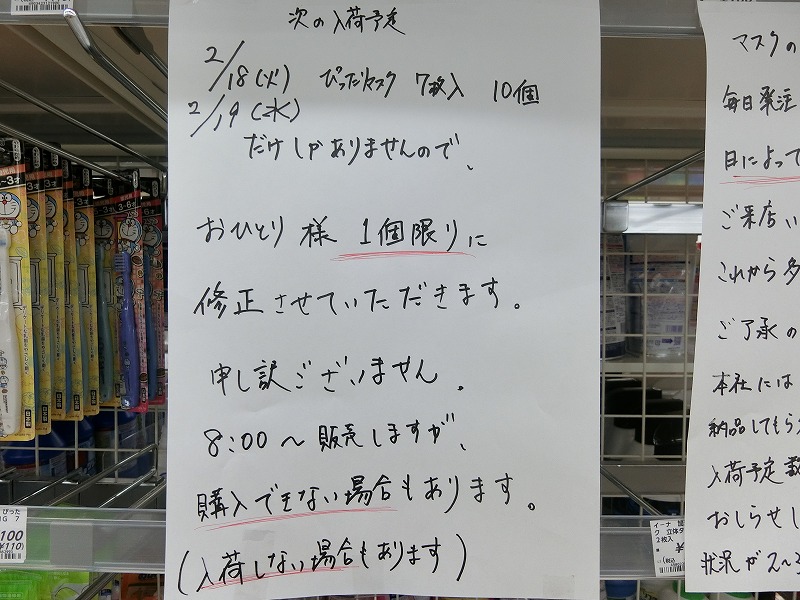 次の入荷予定
2/18(火) ぴったりマスク 7枚入 10個
2/19(水)
だけしかありませんので、
おひとり様 1個限りに
修正させていただきます。
申し訳ございません。
8:00～販売しますが、
購入できない場合もあります。
(入荷しない場合もあります)
マスクの
毎日発注
日によって
ご来店い
これから多
ご了承の
本社には
納品してもら
入荷予定数
おしらせし
状況が2~3
ぴった
G 7
100
(¥110)
3-6才
イーナ
ク 立体タ
2枚入